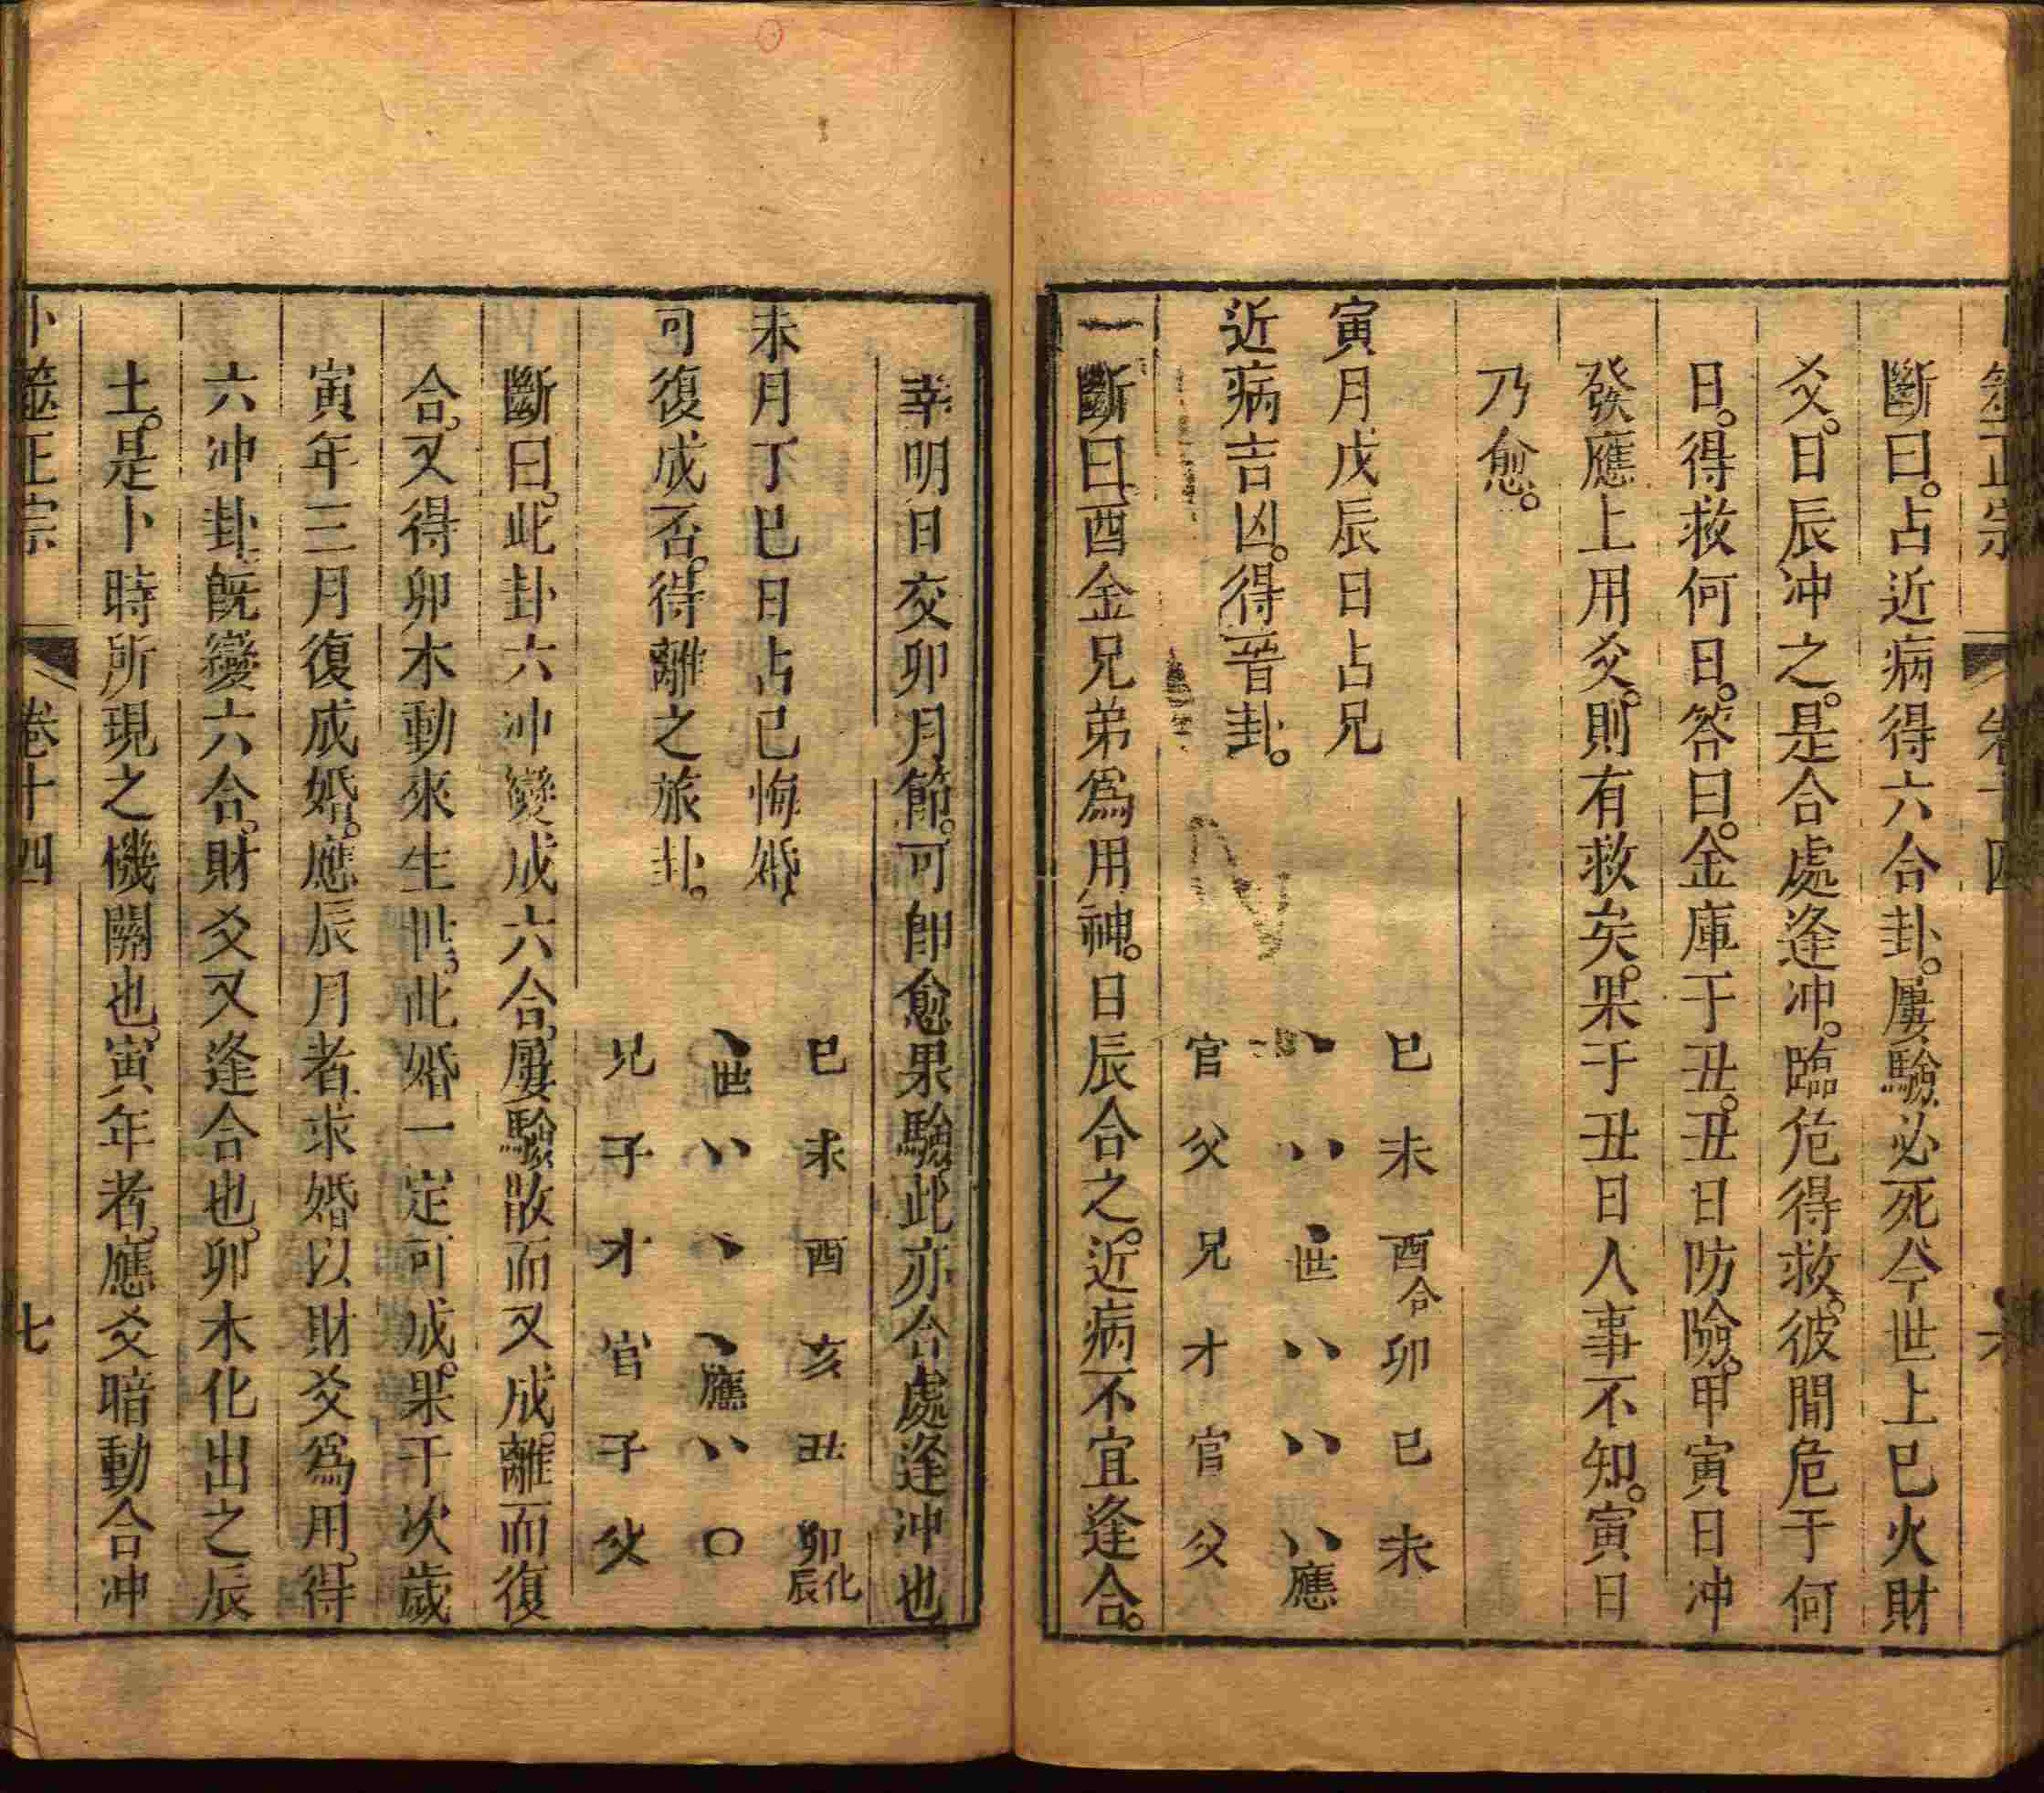 筮正宗 卷十四 六
斷曰。占近病得六合卦。屢驗必死今世上巳火財
爻。日辰冲之。是合處逢冲。臨危得救。彼間危于何
日。得救何日。答曰。金庫于丑。丑日防險。甲寅日冲
發應上用爻。則有救矣。果于丑日人事不知。寅日
乃愈。
寅月戊辰日占兄
近病吉凶。得晉卦。
巳 未 酉合 卯 巳 未
丶 八 丶世 八 八 八應
官 父 兄 才 官 父
斷曰酉金兄弟爲用神。日辰合之。近病不宜逢合。
幸明日交卯月節。可卽愈果驗此亦合處逢冲也
未月丁巳日占已悔婚
可復成否。得離之旅卦。
巳 未 酉 亥 丑 卯化辰
丶世 八 丶 丶應 八 〇
兄 子 才 官 子 父
斷曰。此卦六冲變成六合。屢驗散而又成。離而復
合。又得卯木動來生世。此婚一定可成。果于次歲
寅年三月復成婚。應辰月者求婚以財爻爲用。得
六冲卦旣變六合。財爻又逢合也。卯木化出之辰
土。是卜時所現之機關也。寅年者。應爻暗動合冲
卜筮正宗 卷十四 七